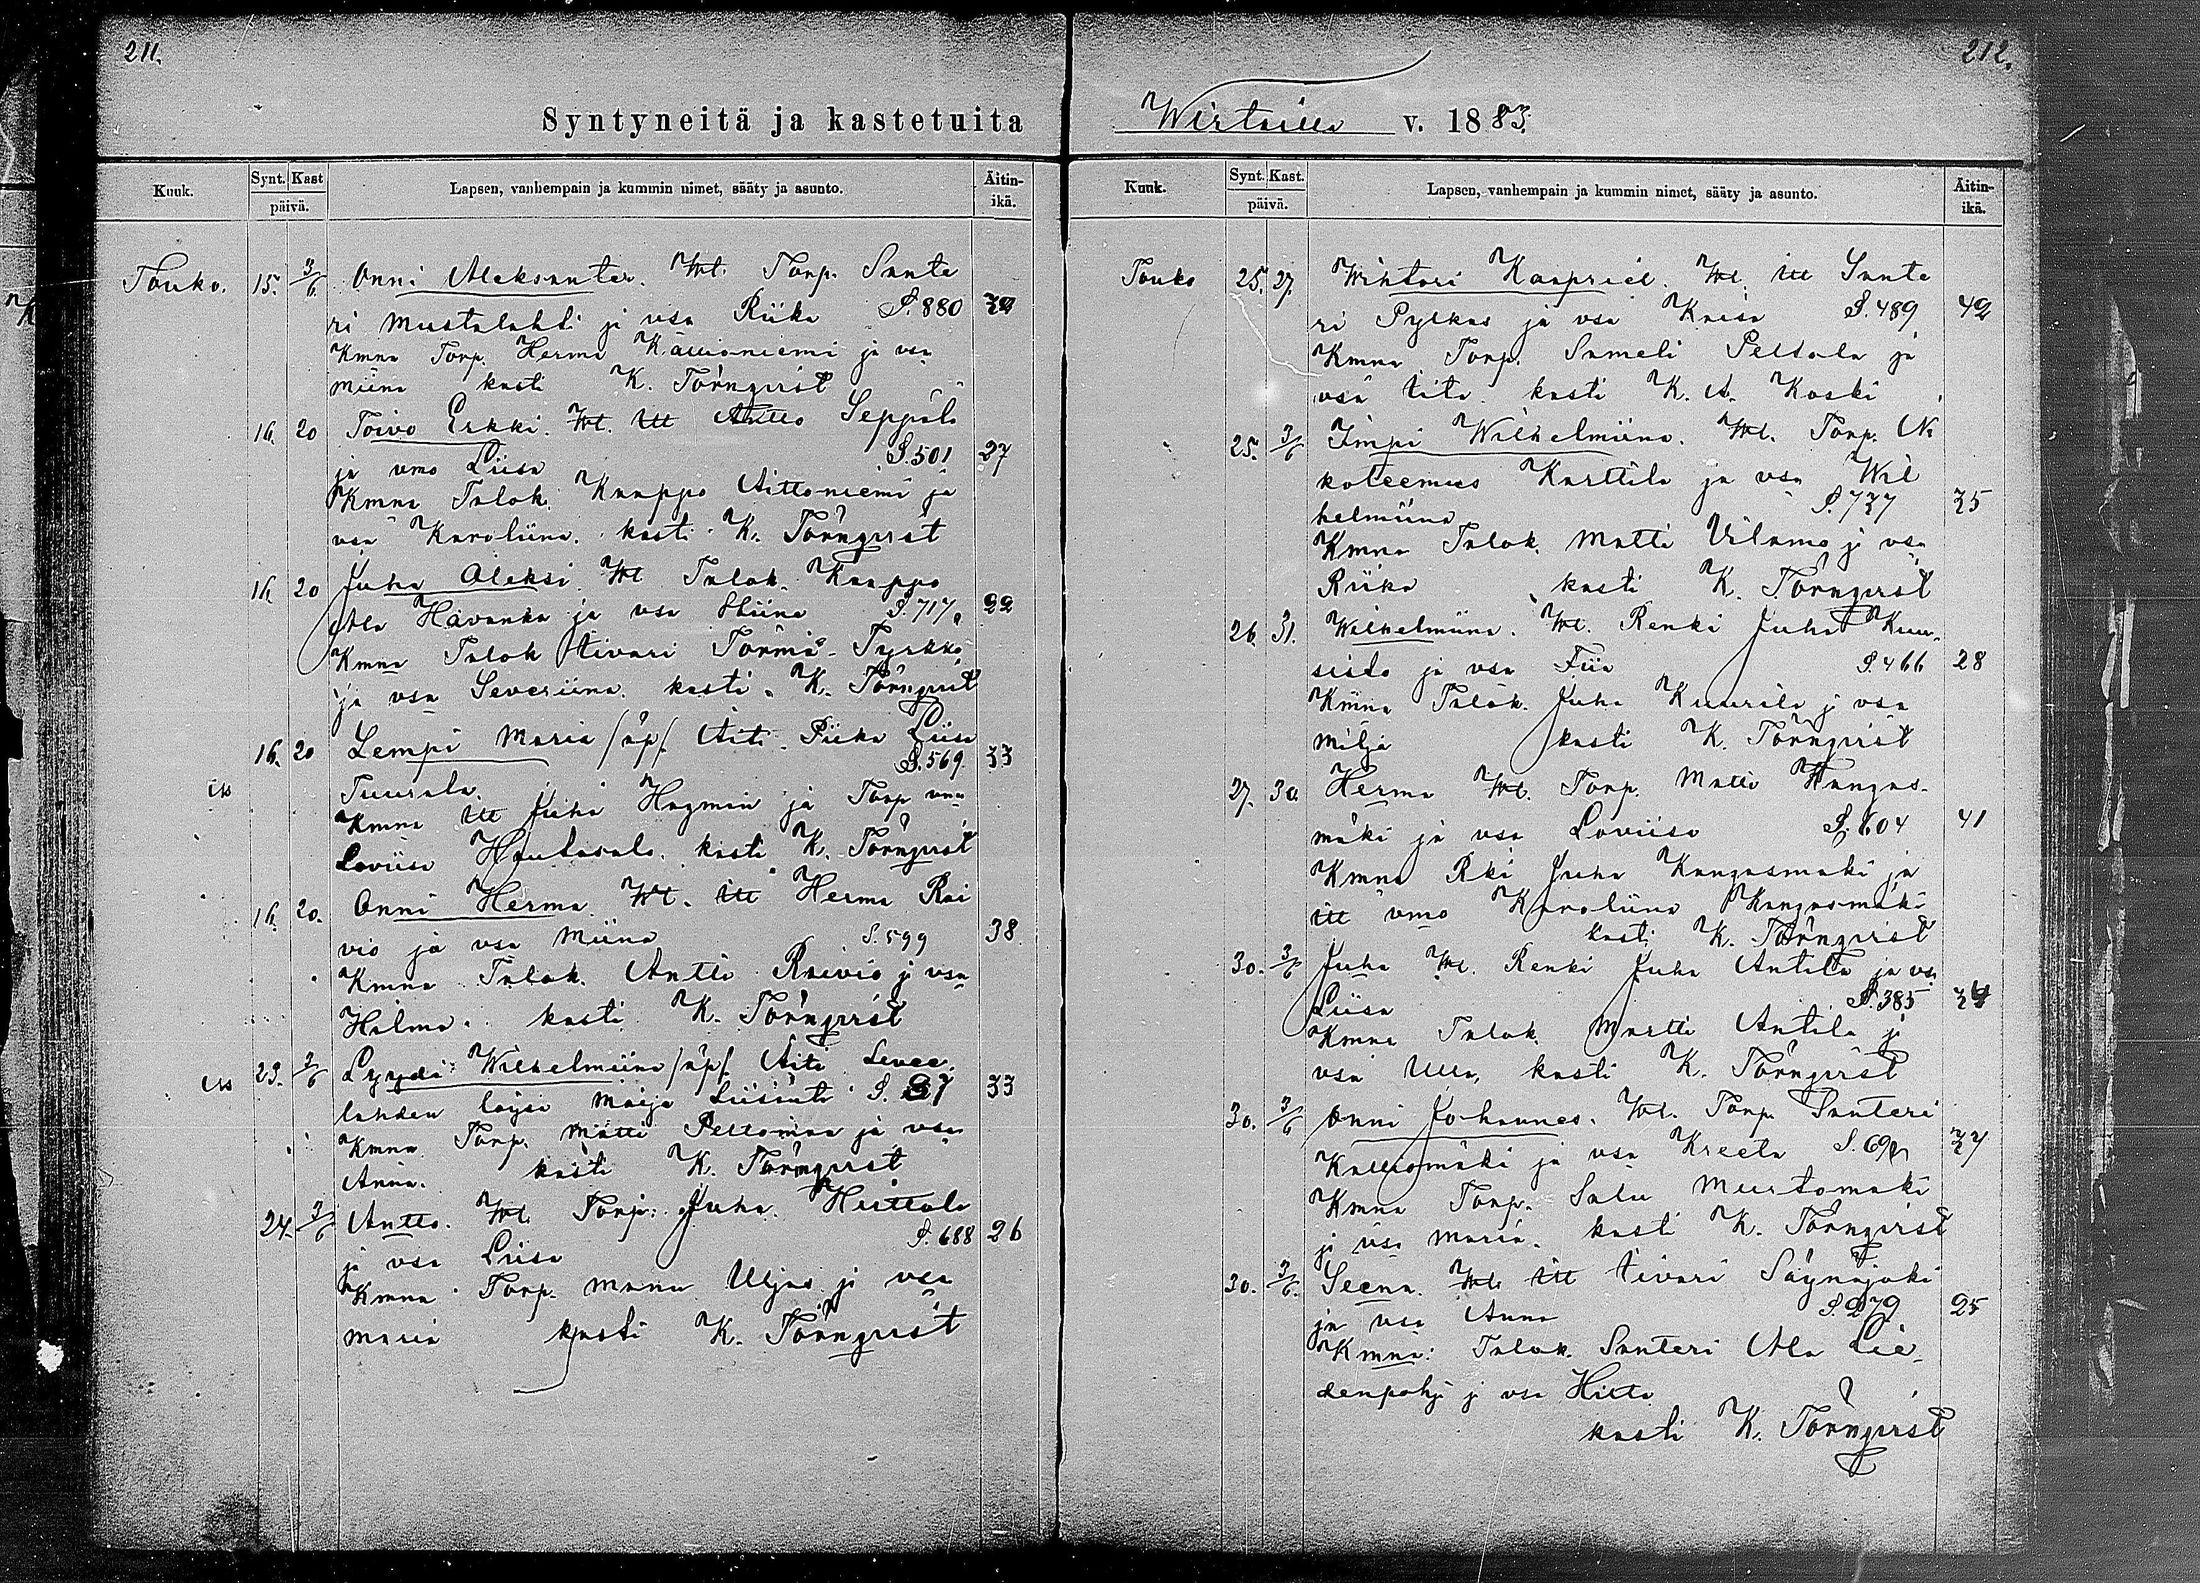 211.
Syntyneitä ja kastetuita
Kuuk. Synt. Kast päivä. Lapsen, vanhempain ja kummin nimet, sääty ja asunto. Äitin-ikä.
Touko. 15. 3/6 Onni Aleksanter. Wt. Torp. Sante
ri Mustalahti ja vsa Riika S. 880
Kmna Torp. Herma Kallioniemi ja vsa
Miina kasti K. Törnqvist
16. 20 Toivo Erkki. Wt. Itt Antto Seppälä
ja vmo Liisa S. 501 27
Kmna Talok. Kaappo Aittoniemi ja
vsa Karoliina. kasti K. Törnqvist
16. 20 Juha Aleksi Wt Talok. Kaappo
Ala Havanka ja vsa Stiina S. 717. 22
Kmna Talok Iivari Törmä-Tyrkkö
ja vsa Severiina. kasti K. Törnqvist
16. 20 Lempi Maria /äp/. Äiti Riika Liisa
Tuurala. S. 569. 33
Kmna Itt Juha Hagman ja Torp vmo
Loviisa Hautasalo. kasti K. Törnqvist
16. 20. Onni Herma Wt. Itt Herma Rai
vio ja vsa Miina S. 599 38.
Kmna Talok. Antti Raivio j vsa
Hilma. kasti K. Törnqvist
23. 3/6 Lyydi Wilhelmiina /äp/. Äiti
lahden löysä Maija S. 33
Kmna Torp. Matti Peltomaa ja vsa
Anna. kasti K. Törnqvist
24. 3/6 Antto. Wt. Torp. Juha Huttola
ja vsa Liisa S. 688 26
Kmna Torp. Manu Uljas j vsa
Maria kasti K. Törnqvist
212.
Wirtailla v. 1883.
Kuuk. Synt. Kast. päivä. Lapsen, vanhempain ja kummin nimet, sääty ja asunto. Äitin-ikä.
Touko 25. 27. Wihtori Kaapriel. Wt. Itt Sante
ri Pylkäs ja vsa Kaisa S. 489 42
Kmna Torp. Sameli Peltola ja
vsa Iita kasti K. A. Koski
25. 3/6 Iimpi Wilhelmiina. Wt. Torp. Ni
koteemus Karttila ja vsa Wil
helmiina S. 737 35
Kmna Talok. Matti Vilamo j vsa
Riika kasti K. Törnqvist
26. 31. Wilhelmiina. Wt. Renki Juha Kuu-
sisto ja vsa Fiia S. 466 28
Kmna Talok. Juha Kuurila j vsa
Milja kasti K. Törnqvist
27. 30. Herma Wt. Torp. Matti Kangas-
mäki ja vsa Loviisa S. 604 41
Kmna Rki Juha Kangasmäki ja
Itt vmo Karoliina Kangasmäki
kasti K. Törnqvist
30. 3/6 Juha Wt. Renki Juha Antila ja vsa
Liisa S. 385
Kmna Talok. Martti Antila j
vsa Ulla, kasti K. Törnqvist
30. 3/6 Onni Johannes. Wt. Torp. Santeri
Kalliomäki ja vsa Kreeta 37
Kmna Torp. Salu Mustomäki
ja vsa Maria. kasti K. Törnqvist
30. 3/6. Seena. Wt. Itt Iivari Säynäjoki
ja vsa Anna S. 279 25
Kmna: Talok. Santeri Ala Lie-
denpohj j vsa Hilta
kasti K. Törnqvist